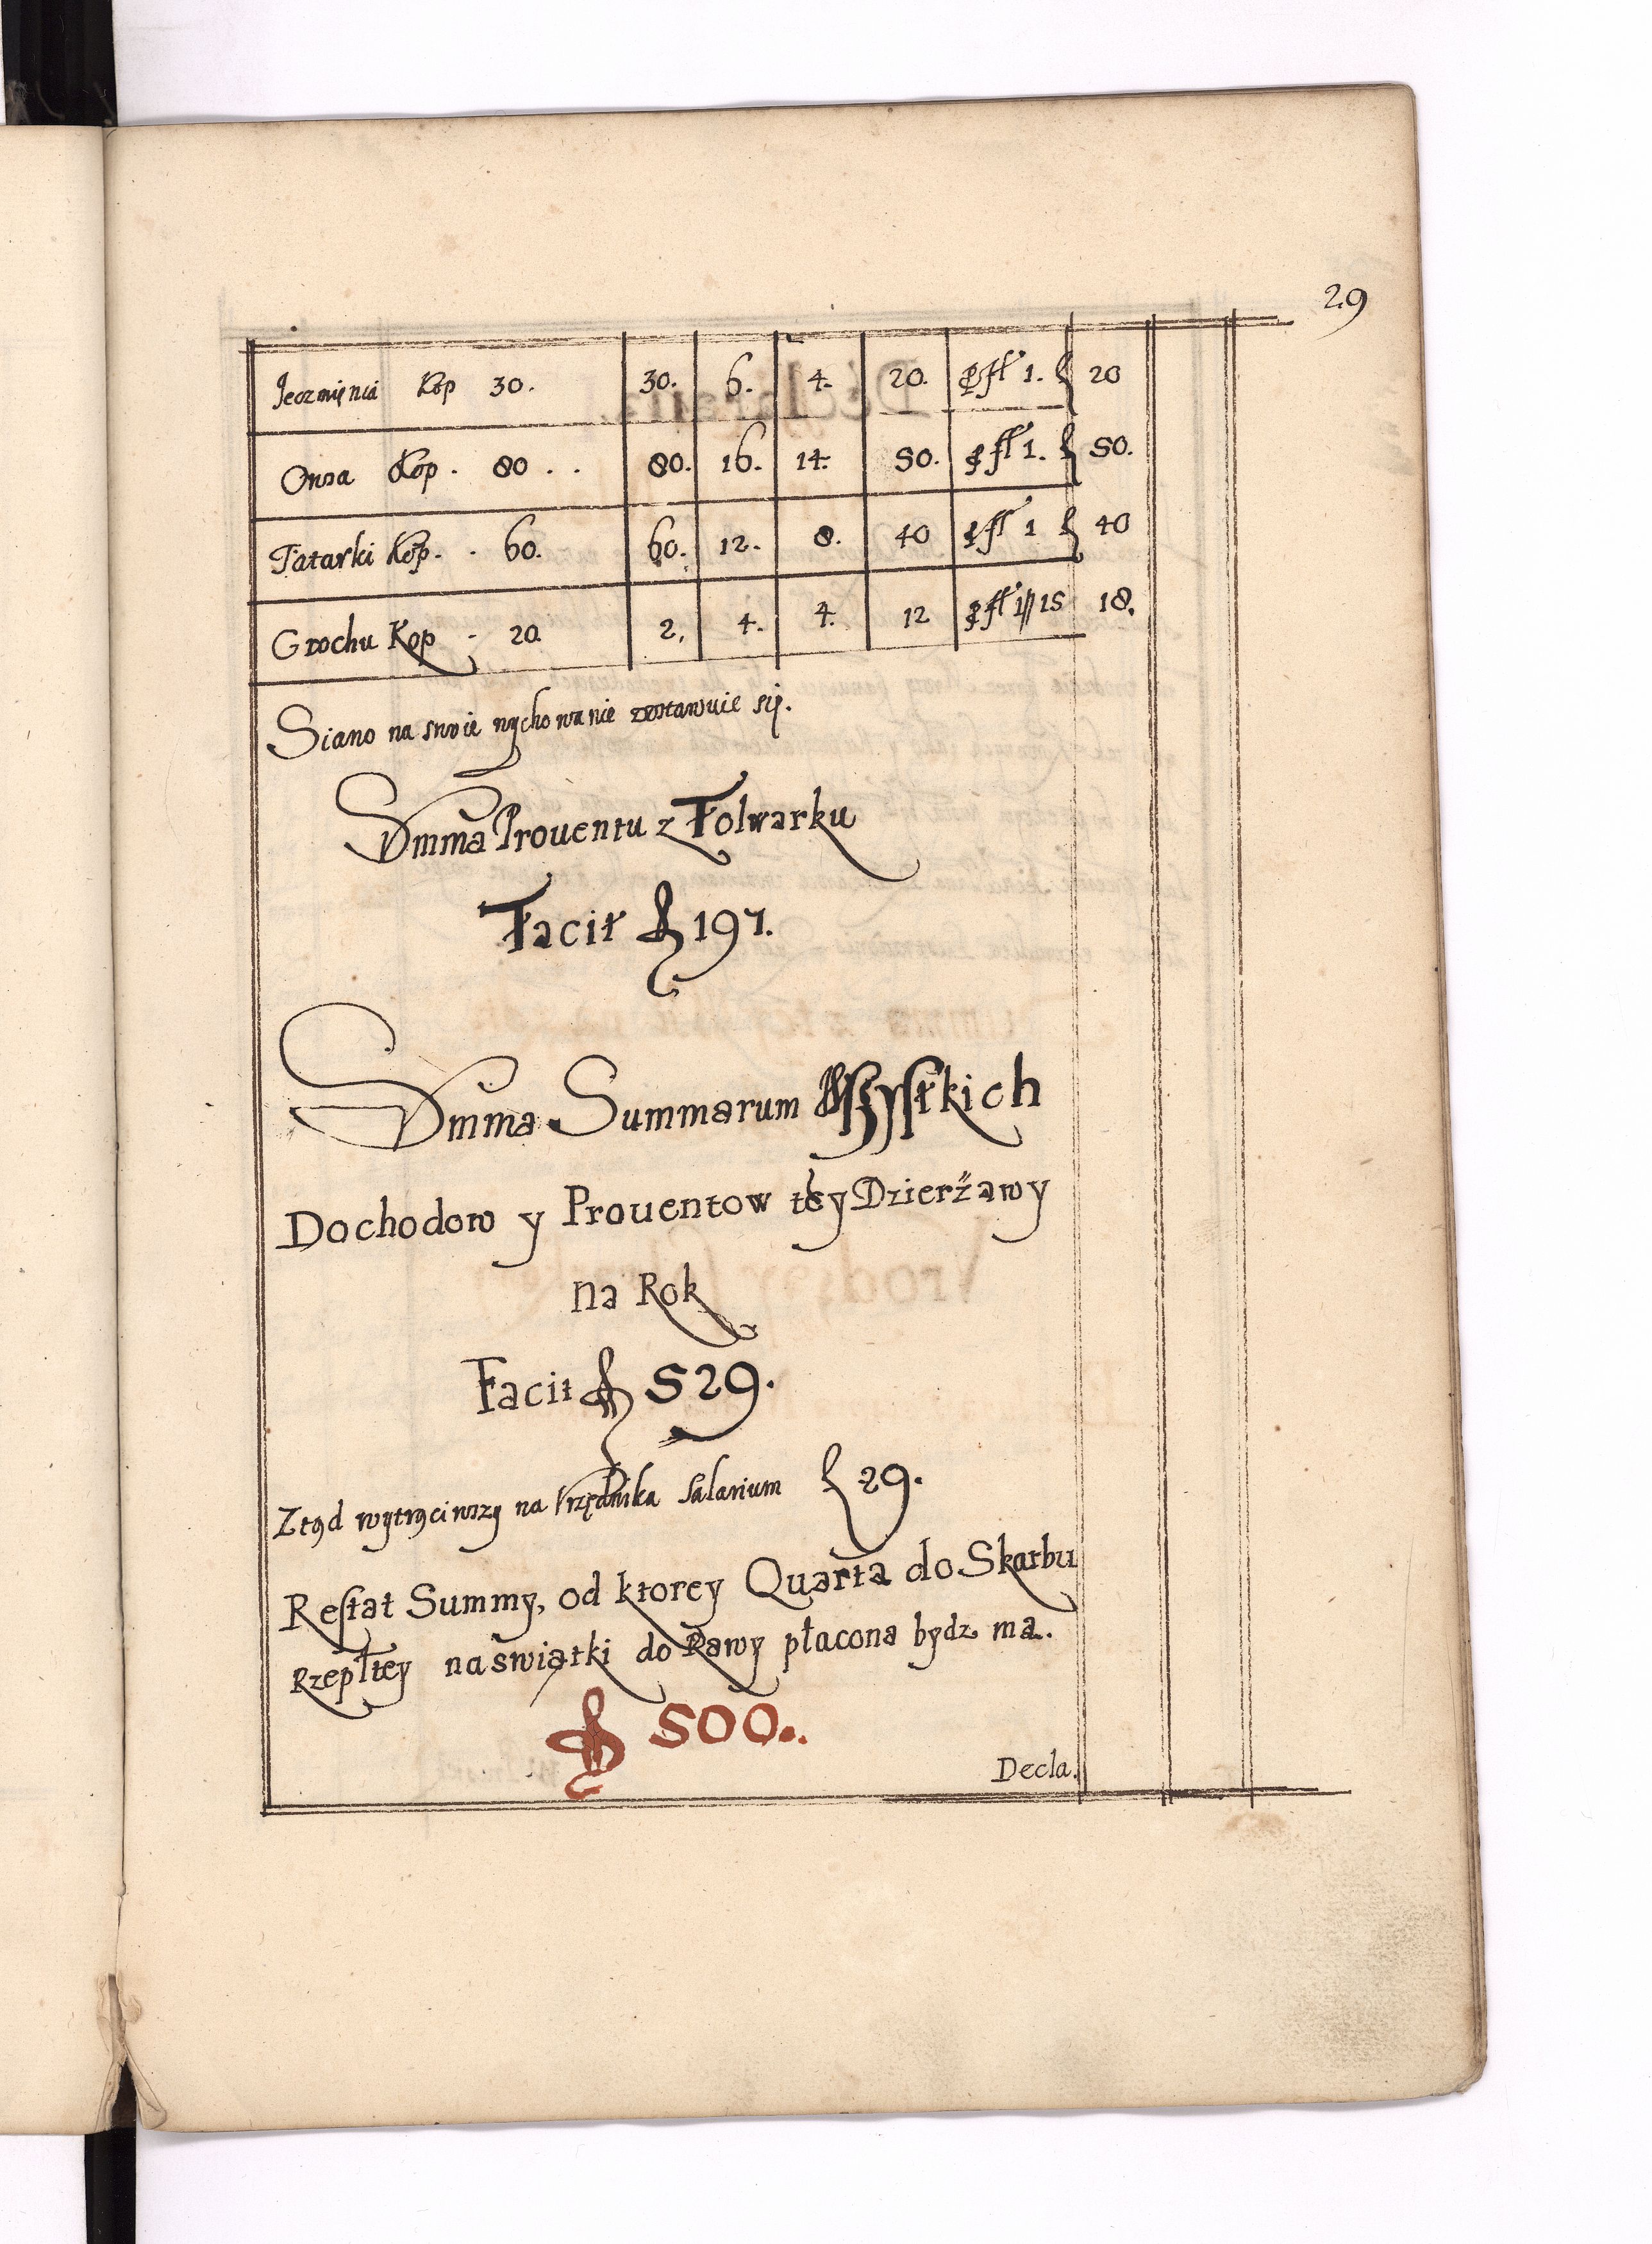 29
Jeczmięnia Kop 30. 30. 6. 4. 20. ꝑ fł 1. f 20
Owsa Kop. 80 . . 80. 16. 14. 50. ꝑ fł 1. f 50.
Tatarki Kop. . 60. 60. 12. 8. 40 ꝑ fł 1 f 40
Grochu Kop . 20. 2, 4. 4. 12 ꝑ fł 1// 15 18.
Siano na swoie wychowanie zostawuie się.
Summa Prouentu z Folwarku
Facit f 197.
Summa Summarum Wszystkich
Dochodow y Prouentow tey Dzierżawy
na Rok
Facit f 529.
Ztąd wytrąciwszy na Vrzędnika Salarium f 29.
Restat Summy, od ktorey Quarta do Skarbu
Rzepltey na swiątki do Rawy płacona bydz ma.
f 500.
Decla.